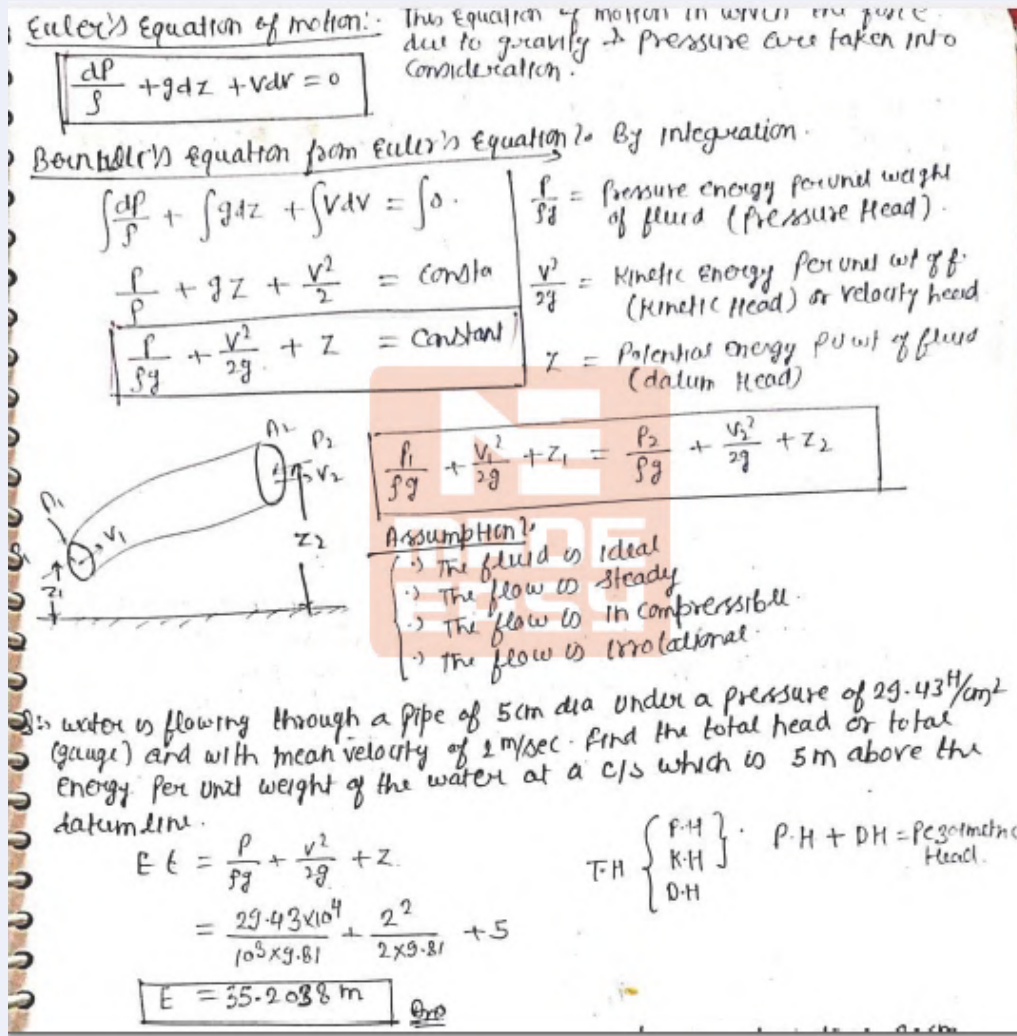 Euler's Equation of motion:- This Equation of motion in which the force
due to gravity & Pressure are taken into
Consideration.
dP/ρ + gdz + vdv = 0
Bernoulli's Equation from Euler's Equation:- By integration.
∫dP/ρ + ∫gdz + ∫vdv = ∫0.
P/ρg = Pressure energy per unit weight
of fluid (Pressure Head).
P/ρ + gz + V²/2 = Consta
V²/2g = Kinetic Energy Per unit wt of f.
(Kinetic Head) or velocity head
P/ρg + V²/2g + Z = Constant
Z = Potential energy p u wt of fluid
(datum Head)
P₁/ρg + V₁²/2g + Z₁ = P₂/ρg + V₂²/2g + Z₂
A₂
P₂
V₂
V₁
Z₁
Z₂
MADE
EASY
Assumption:-
·) The fluid is ideal
·) The flow is steady
·) The flow is incompressible.
·) The flow is irrotational.
water is flowing through a pipe of 5cm dia under a pressure of 29.43 N/cm²
(gauge) and with mean velocity of 2 m/sec. find the total head or total
Energy Per unit weight of the water at a c/s which is 5m above the
datum line.
E t = P/ρg + V²/2g + Z.
T.H { P.H K.H D.H } . P.H + DH = Pezometric
Head.
= 29.43×10⁴/10³×9.81 + 2²/2×9.81 + 5
E = 35.2038 m Ans